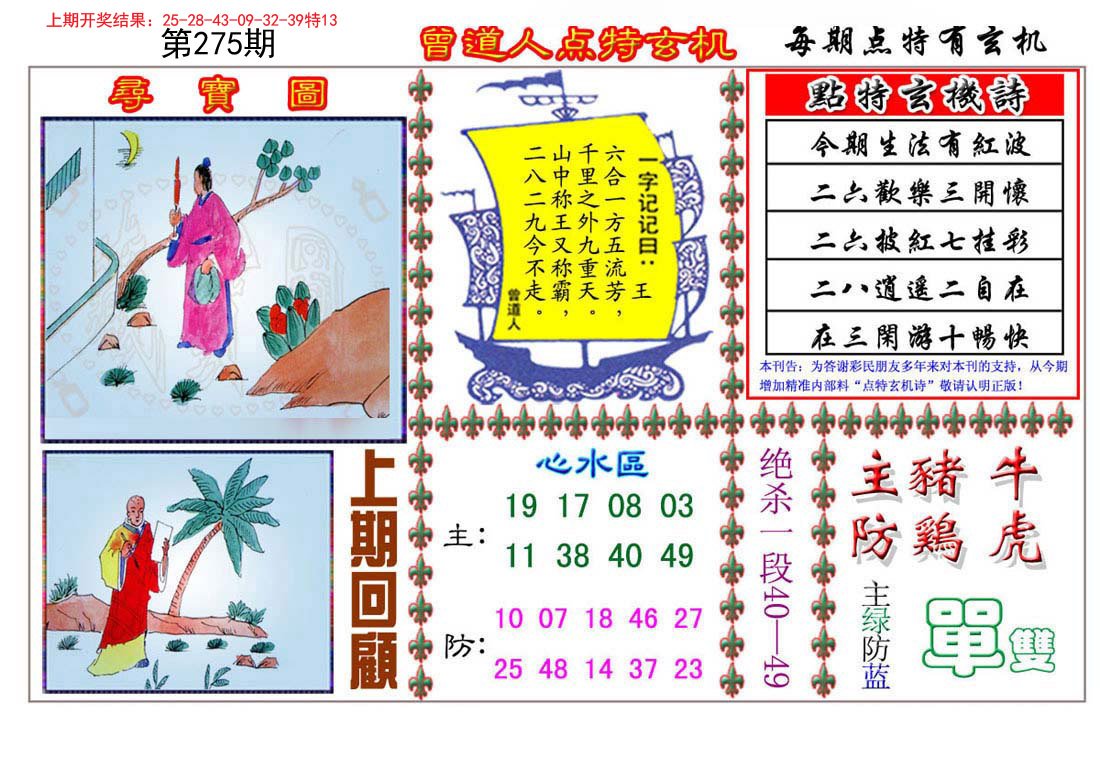 上期开奖结果：25-28-43-09-32-39特13
第275期
曾道人点特玄机
每期点特有玄机
尋寶圖
一字记记曰：王
六合一方五流芳，
千里之外九重天。
山中称王又称霸，
二八二九今不走。
曾道人
點特玄機詩
今期生法有紅波
二六歡樂三開懷
二六披紅七挂彩
二八逍遥二自在
在三閑游十暢快
本刊告：为答谢彩民朋友多年来对本刊的支持，从今期
增加精准内部料“点特玄机诗”敬请认明正版！
上期回顧
心水區
主：
19 17 08 03
11 38 40 49
防：
10 07 18 46 27
25 48 14 37 23
绝杀一段40—49
主豬牛
防鷄虎
主绿防蓝
單雙